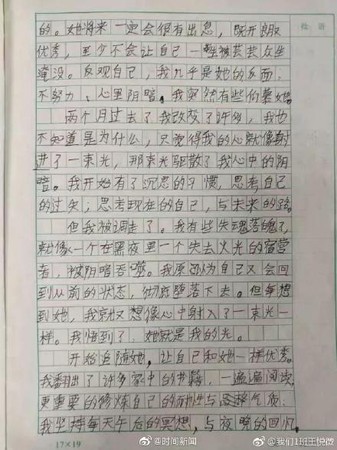 批语
的。她将来一定会很有出息，既开朗又
优秀，至少不会让自己一生被芸芸众生
淹没。反观自己，我几乎是她的反面，
不努力、心里阴暗。我突然有些仰慕她。
两个月过去了我改变了许多，我也
不知道是为什么，只觉得我的心就像射
进了一束光，那束光驱散了我心中的阴
暗。我开始有了沉思的习惯，思考自己
的过失；思考现在的自己，与未来的路。
但我被调走了。我有些失魂落魄了，
就像一个在黑夜里一个失去火光的宿营
者，被阴暗吞噬。我原以为自己又会回
到从前的状态，彻底堕落下去。但每想
到她，我就又想像心中射入了一束光一
样。我悟到了，她就是我的光。
开始追随她，让自己和她一样优秀。
我翻出了许多家中的书籍，一遍遍阅读，
更重要的修炼自己的
我坚持每天午后的冥想，与夜晚的回
17×19
@时间新闻
@我们1班王悦微